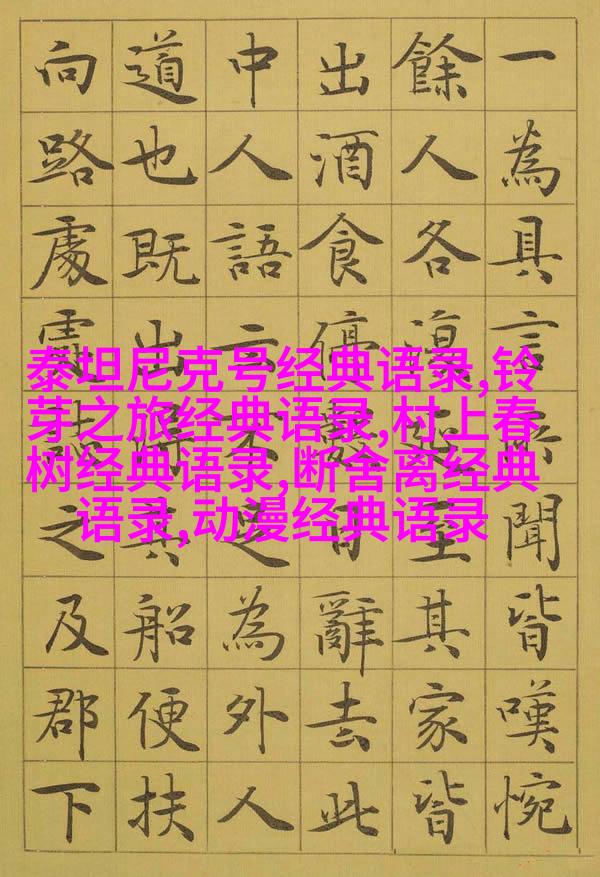 泰坦尼克号经典语录,铃
芽之旅经典语录,村上春
树经典语录,断舍离经典
语录,动漫经典语录
一為具言所聞皆嘆惋
餘人各復延至其家皆
出酒食停數日辭去此
中人語云不足為外人
道也既出得其船便扶
向路處處誌之及郡下